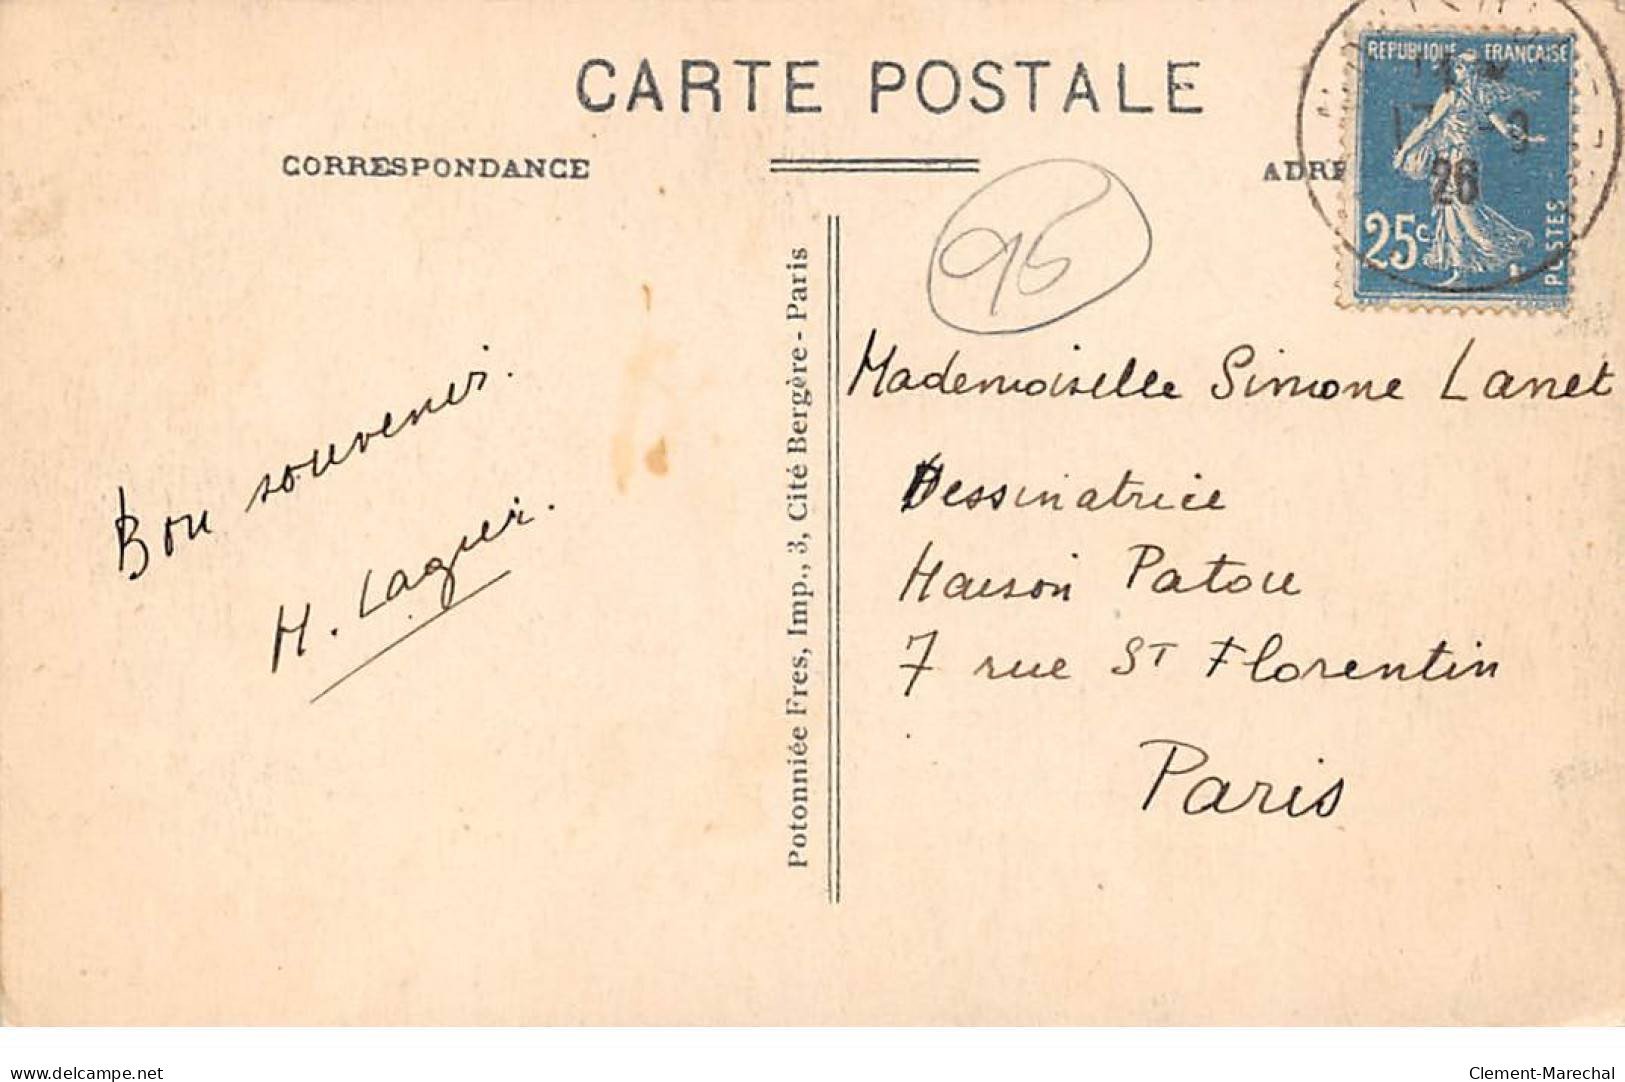 CARTE POSTALE
CORRESPONDANCE
REPUBLIQUE FRANCAISE
25c
POSTES
26
95
Bon souvenir.
H. Laguei.
Potonniée Fres, Imp., 3, Cité Bergère - Paris
Mademoiselle Simone Lanet
Dessinatrice
Maison Patou
7 rue St Florentin
Paris
delcampe.net
Clement-Marechal